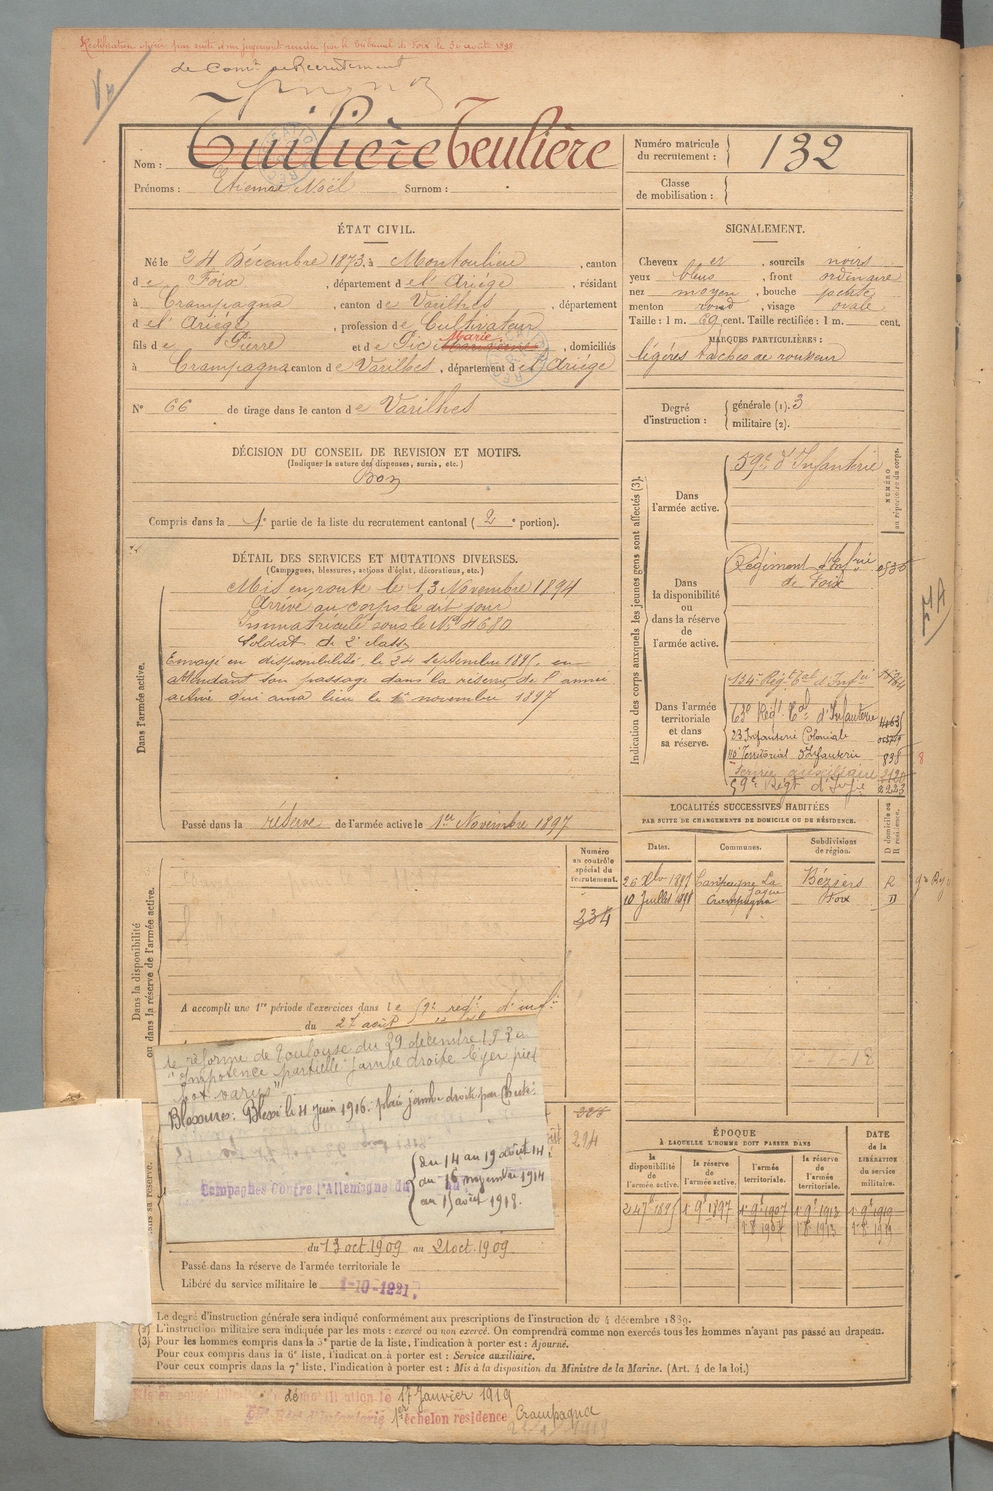 Rectification opérée par suite d'un jugement rendu par le tribunal de Foix le 30 août 1898
de Comt de Recrutement
Vu
Nom : Tuilière Teulière
Prénoms : Etienne Noël Surnom : .
Numéro matricule du recrutement : 132
Classe de mobilisation :
ÉTAT CIVIL.
Né le 24 Décembre 1873, à Montoulieu, canton
de Foix, département de l'Ariége, résidant
à Crampagna, canton de Varilhes, département
de l'Ariége, profession de Cultivateur
fils de Pierre et de Pic Marie, domiciliés
à Crampagna canton de Varilhes, département de l'Ariége
N° 66 de tirage dans le canton de Varilhes
SIGNALEMENT.
Cheveux et, sourcils noirs
yeux bleus, front ordinaire
nez moyen, bouche petite
menton rond, visage ovale
Taille : 1 m. 69 cent. Taille rectifiée : 1 m. cent.
MARQUES PARTICULIÈRES :
légères taches de rousseur
Degré d'instruction : générale (1). 3
militaire (2).
DÉCISION DU CONSEIL DE REVISION ET MOTIFS.
(Indiquer la nature des dispenses, sursis, etc.)
Bon
Compris dans la 1e partie de la liste du recrutement cantonal (2e portion).
DÉTAIL DES SERVICES ET MUTATIONS DIVERSES.
(Campagnes, blessures, actions d'éclat, décorations, etc.)
Dans l'armée active.
Mis en route le 13 Novembre 1894
Arrivé au corps le dit jour
Immatriculé sous le N° 4680
Soldat de 2e classe
Envoyé en disponibilité le 24 septembre 1895, en
attendant son passage dans la réserve de l'armée
active qui aura lieu le 1er novembre 1897
Passé dans la réserve de l'armée active le 1er Novembre 1897
Indication des corps auxquels les jeunes gens sont affectés (3).
NUMÉRO au répertoire du corps.
Dans l'armée active.
59e d'Infanterie
Dans la disponibilité ou dans la réserve de l'armée active.
Régiment d'Infrie
de Foix
Dans l'armée territoriale et dans sa réserve.
134e Régt Tal d'Infie
23 Infanterie Coloniale
Territorial d'Infanterie 838
Service auxiliaire
59e Régt d'Infie 2223
8
LOCALITÉS SUCCESSIVES HABITÉES
PAR SUITE DE CHANGEMENTS DE DOMICILE OU DE RÉSIDENCE.
Dates. Communes. Subdivisions de région. D domicile ou R résidence.
Béziers R
10 Juillet 1898 Crampagna Foix D
Dans la disponibilité ou dans la réserve de l'armée active.
Numéro au contrôle spécial du recrutement.
234
A accompli une 1re période d'exercices dans le 59e regt d'infie
du 27 août
de réforme de Toulouse du 29 décembre
"Impotence partielle jambe droite léger pied
bot varus"
Blessures : Blessé le 4 juin 1916 : plaie jambe droite par
Campagnes contre l'Allemagne du
du 14 au 19 août 14
du 16 novembre 1914
au 15 août 1918.
294
du 13 oct. 1909 au 21 oct. 1909
Passé dans la réserve de l'armée territoriale le
Libéré du service militaire le 1-10-1921.
ÉPOQUE
À LAQUELLE L'HOMME DOIT PASSER DANS
DATE de la LIBÉRATION du service militaire.
la disponibilité de l'armée active. la réserve de l'armée active. l'armée territoriale. la réserve de l'armée territoriale.
24 7bre 1895 1er 9bre 1897 1er 9bre 1907 1er 9bre 1913 1er 9bre 1919
1 8bre 1907 1 8bre 1913 1 8bre 1919
(1) Le degré d'instruction générale sera indiqué conformément aux prescriptions de l'instruction du 4 décembre 1889.
(2) L'instruction militaire sera indiquée par les mots : exercé ou non exercé. On comprendra comme non exercés tous les hommes n'ayant pas passé au drapeau.
(3) Pour les hommes compris dans la 5e partie de la liste, l'indication à porter est : Ajourné.
Pour ceux compris dans la 6e liste, l'indication à porter est : Service auxiliaire.
Pour ceux compris dans la 7e liste, l'indication à porter est : Mis à la disposition du Ministre de la Marine. (Art. 4 de la loi.)
le 17 Janvier 1919
1er échelon residence Crampagna